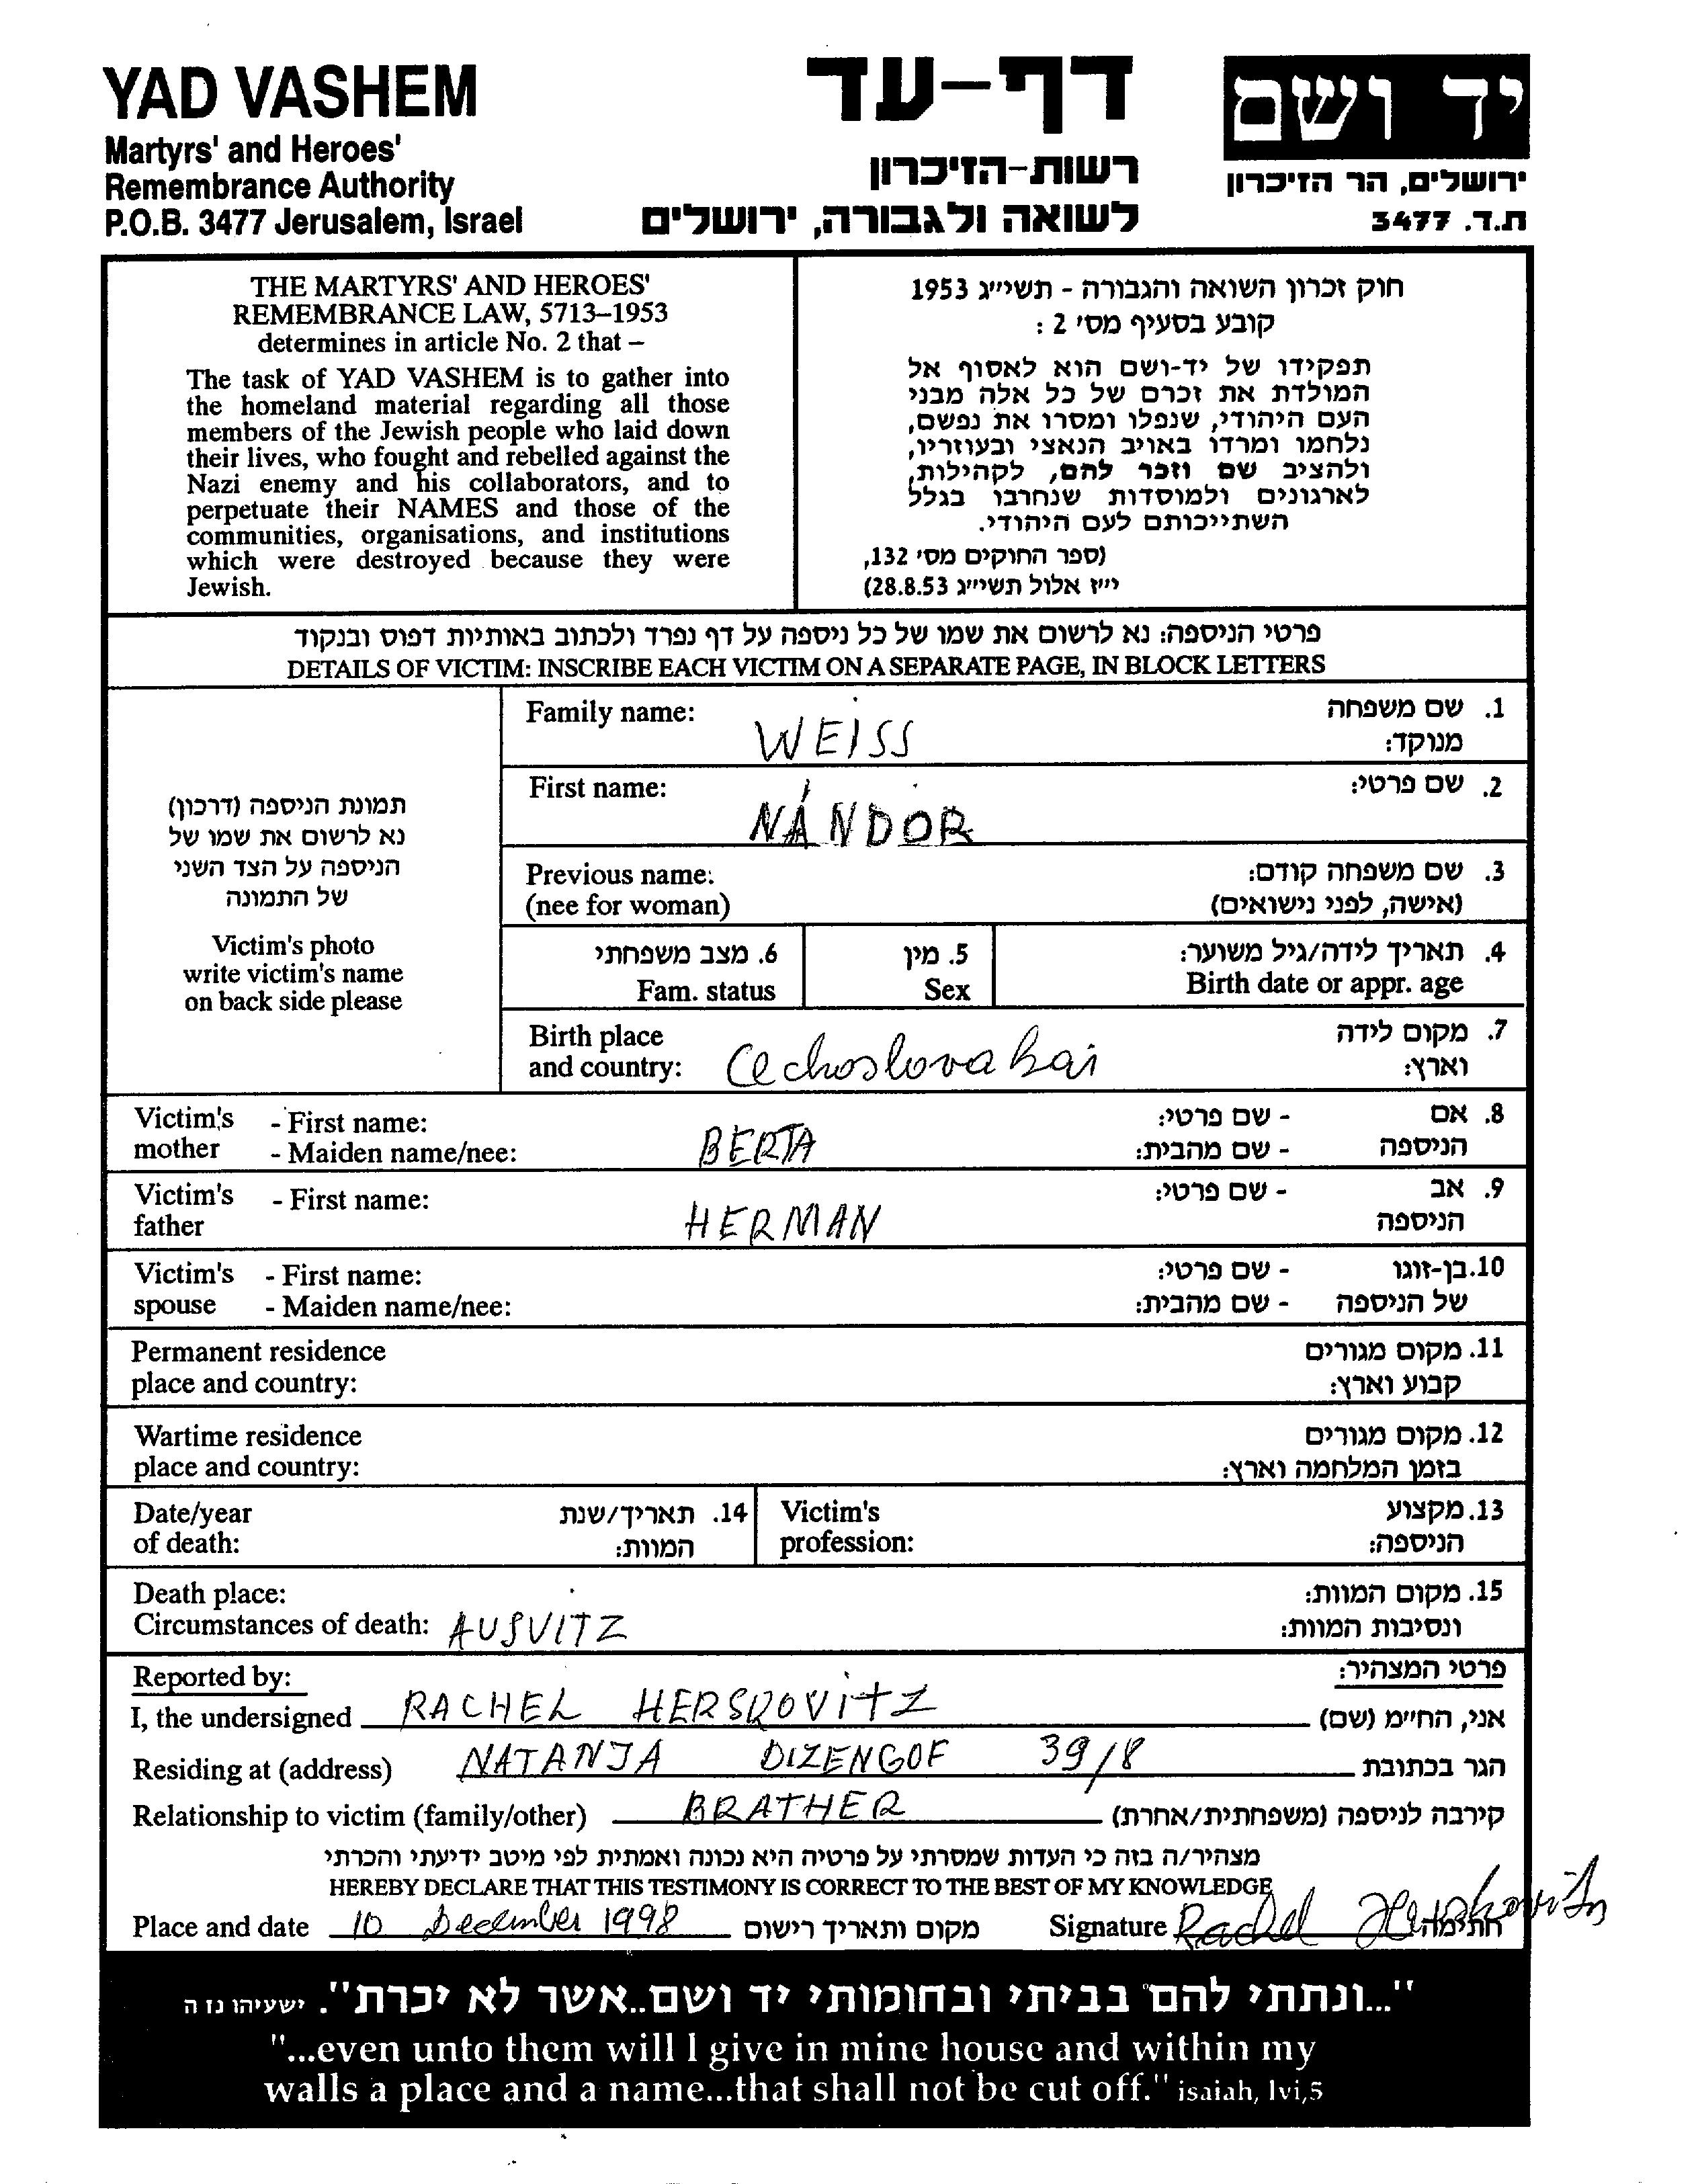 YAD VASHEM
Martyrs' and Heroes'
Remembrance Authority
P.O.B. 3477 Jerusalem, Israel
דף-עד
רשות-הזיכרון
לשואה ולגבורה, ירושלים
יד ושם
ירושלים, הר הזיכרון
ת.ד. 3477
THE MARTYRS' AND HEROES'
REMEMBRANCE LAW, 5713–1953
determines in article No. 2 that –
The task of YAD VASHEM is to gather into
the homeland material regarding all those
members of the Jewish people who laid down
their lives, who fought and rebelled against the
Nazi enemy and his collaborators, and to
perpetuate their NAMES and those of the
communities, organisations, and institutions
which were destroyed because they were
Jewish.
חוק זכרון השואה והגבורה - תשי״ג 1953
קובע בסעיף מס׳ 2 :
תפקידו של יד-ושם הוא לאסוף אל
המולדת את זכרם של כל אלה מבני
העם היהודי, שנפלו ומסרו את נפשם,
נלחמו ומרדו באויב הנאצי ובעוזריו,
ולהציב שם וזכר להם, לקהילות,
לארגונים ולמוסדות שנחרבו בגלל
השתייכותם לעם היהודי.
(ספר החוקים מס׳ 132,
י״ז אלול תשי״ג 28.8.53)
פרטי הניספה: נא לרשום את שמו של כל ניספה על דף נפרד ולכתוב באותיות דפוס ובנקוד
DETAILS OF VICTIM: INSCRIBE EACH VICTIM ON A SEPARATE PAGE, IN BLOCK LETTERS
תמונת הניספה (דרכון)
נא לרשום את שמו של
הניספה על הצד השני
של התמונה
Victim's photo
write victim's name
on back side please
Family name: WEISS 1. שם משפחה
מנוקד:
First name: NÁNDOR 2. שם פרטי:
Previous name: 3. שם משפחה קודם:
(nee for woman) (אישה, לפני נישואים)
6. מצב משפחתי 5. מין 4. תאריך לידה/גיל משוער:
Fam. status Sex Birth date or appr. age
Birth place 7. מקום לידה
and country: Cechoslovakai וארץ:
Victim's - First name: - שם פרטי: 8. אם
mother - Maiden name/nee: BERTA - שם מהבית: הניספה
Victim's - First name: - שם פרטי: 9. אב
father HERMAN הניספה
Victim's - First name: - שם פרטי: 10. בן-זוגו
spouse - Maiden name/nee: - שם מהבית: של הניספה
Permanent residence 11. מקום מגורים
place and country: קבוע וארץ:
Wartime residence 12. מקום מגורים
place and country: בזמן המלחמה וארץ:
Date/year 14. תאריך/שנת Victim's 13. מקצוע
of death: המוות: profession: הניספה:
Death place: 15. מקום המוות:
Circumstances of death: AUSVITZ ונסיבות המוות:
Reported by: פרטי המצהיר:
I, the undersigned RACHEL HERSKOVITZ אני, החי״מ (שם)
Residing at (address) NATANJA DIZENGOF 39/8 הגר בכתובת
Relationship to victim (family/other) BRATHER קירבה לניספה (משפחתית/אחרת)
מצהיר/ה בזה כי העדות שמסרתי על פרטיה היא נכונה ואמתית לפי מיטב ידיעתי והכרתי
HEREBY DECLARE THAT THIS TESTIMONY IS CORRECT TO THE BEST OF MY KNOWLEDGE
Place and date 10 December 1998 מקום ותאריך רישום Signature Rachel Herskovits חתימה
"...ונתתי להם בביתי ובחומותי יד ושם..אשר לא יכרת". ישעיהו נז ה
"...even unto them will I give in mine house and within my
walls a place and a name...that shall not be cut off." isaiah, lvi,5